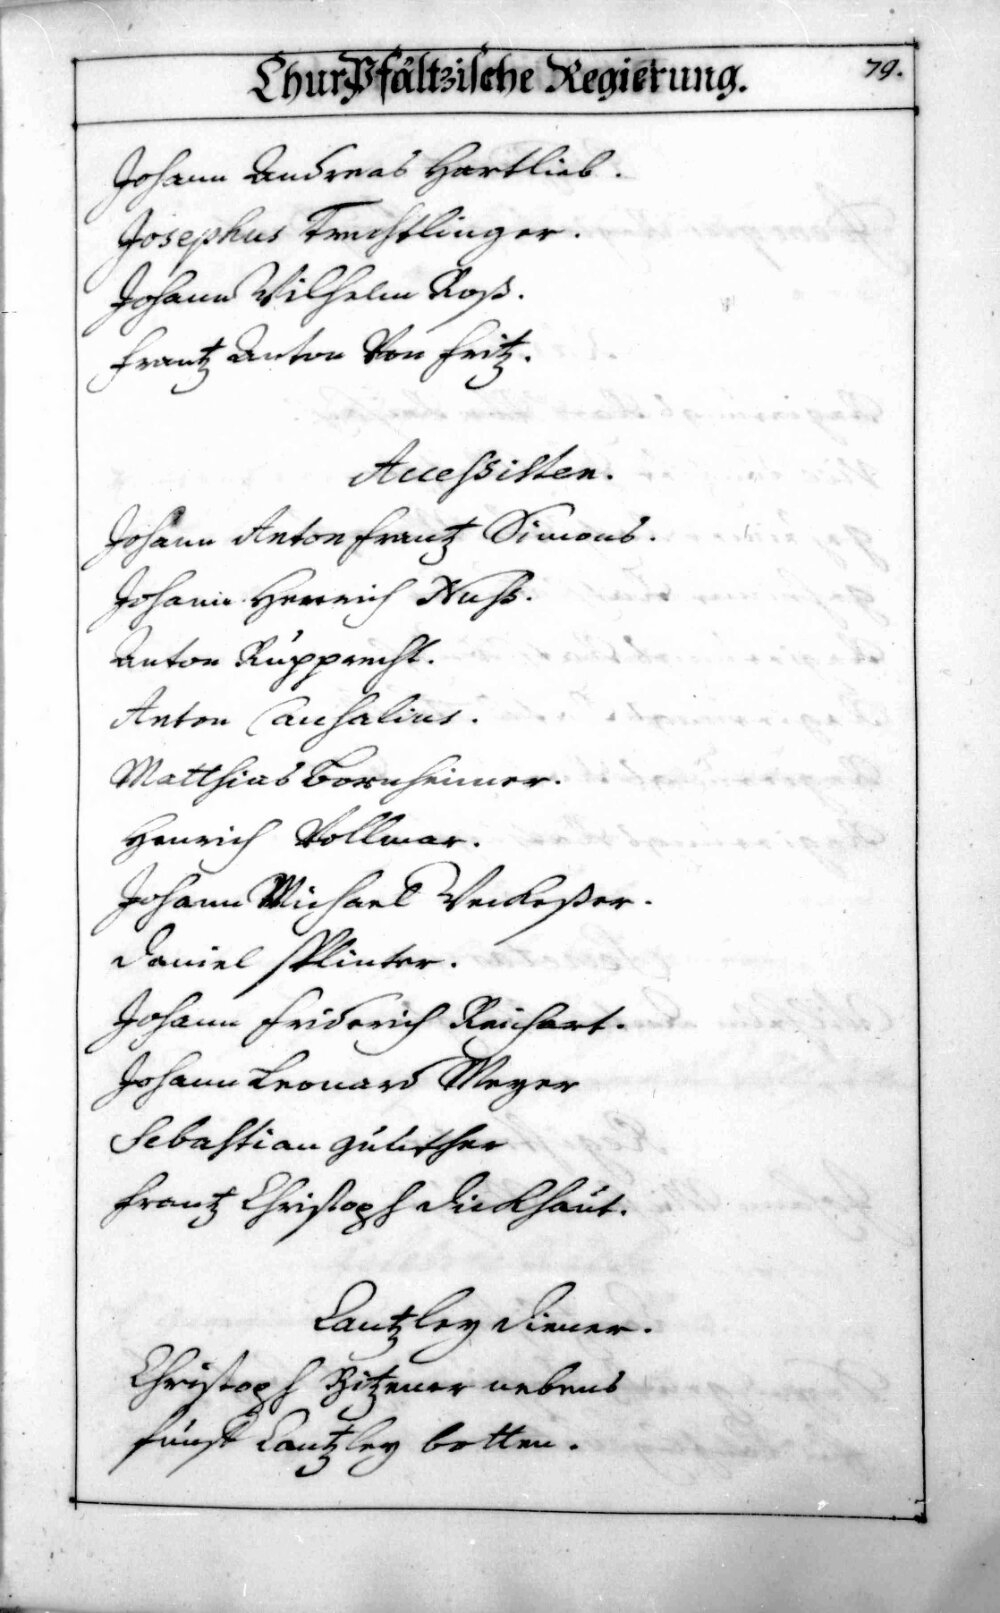 ChurPfältzische Regierung. 79.
Johann Andreas Hartlieb.
Josephus Truchtlinger.
Johann Wilhelm Roß.
Frantz Anton Von Fritz.
Accessisten.
Johann Anton Frantz Simons.
Johann Henrich Nuß.
Anton Rupprecht.
Anton
Matthias Bornheimer.
Henrich Vollmar.
Johann Michael
Daniel Splinter.
Johann Friderich Reichart.
Johann Leonard Meyer
Sebastian Günther
Frantz Christoph Dickhaut.
Cantzley Diener.
Christoph Bitzener nebens
fünff Cantzley botten.